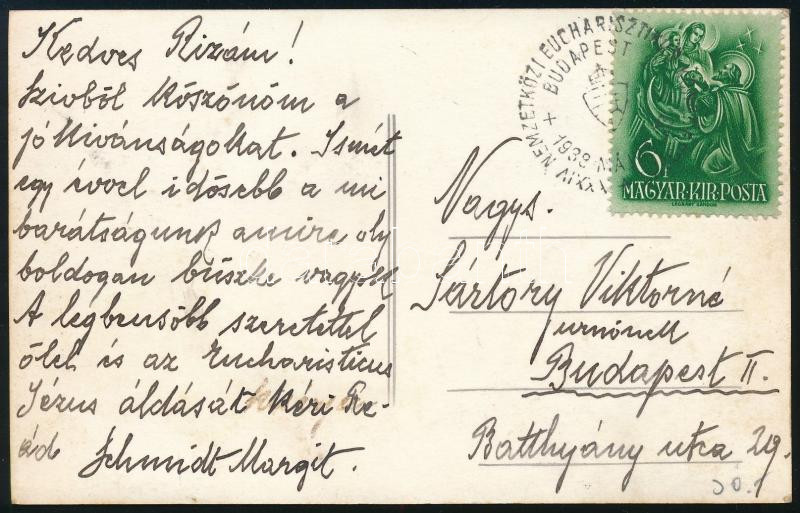 Kedves Rizám!
Szivből köszönöm a
jókivánságokat. Ismét
egy évvel idősebb a mi
barátságunk amire oly
boldogan büszke vagyok
A legbensőbb szeretettel
ölel és az Eucharisticus
Jézus áldását kéri Re-
ád Schmidt Margit.
XXXIV NEMZETKÖZI EUCHARISZTIKUS
BUDAPEST
1938 MÁ
6f
MAGYAR·KIR·POSTA
LEGRÁDY SÁNDOR
Nagys.
Sártory Viktorné
urnőnek
Budapest II.
Batthyány utca 29.